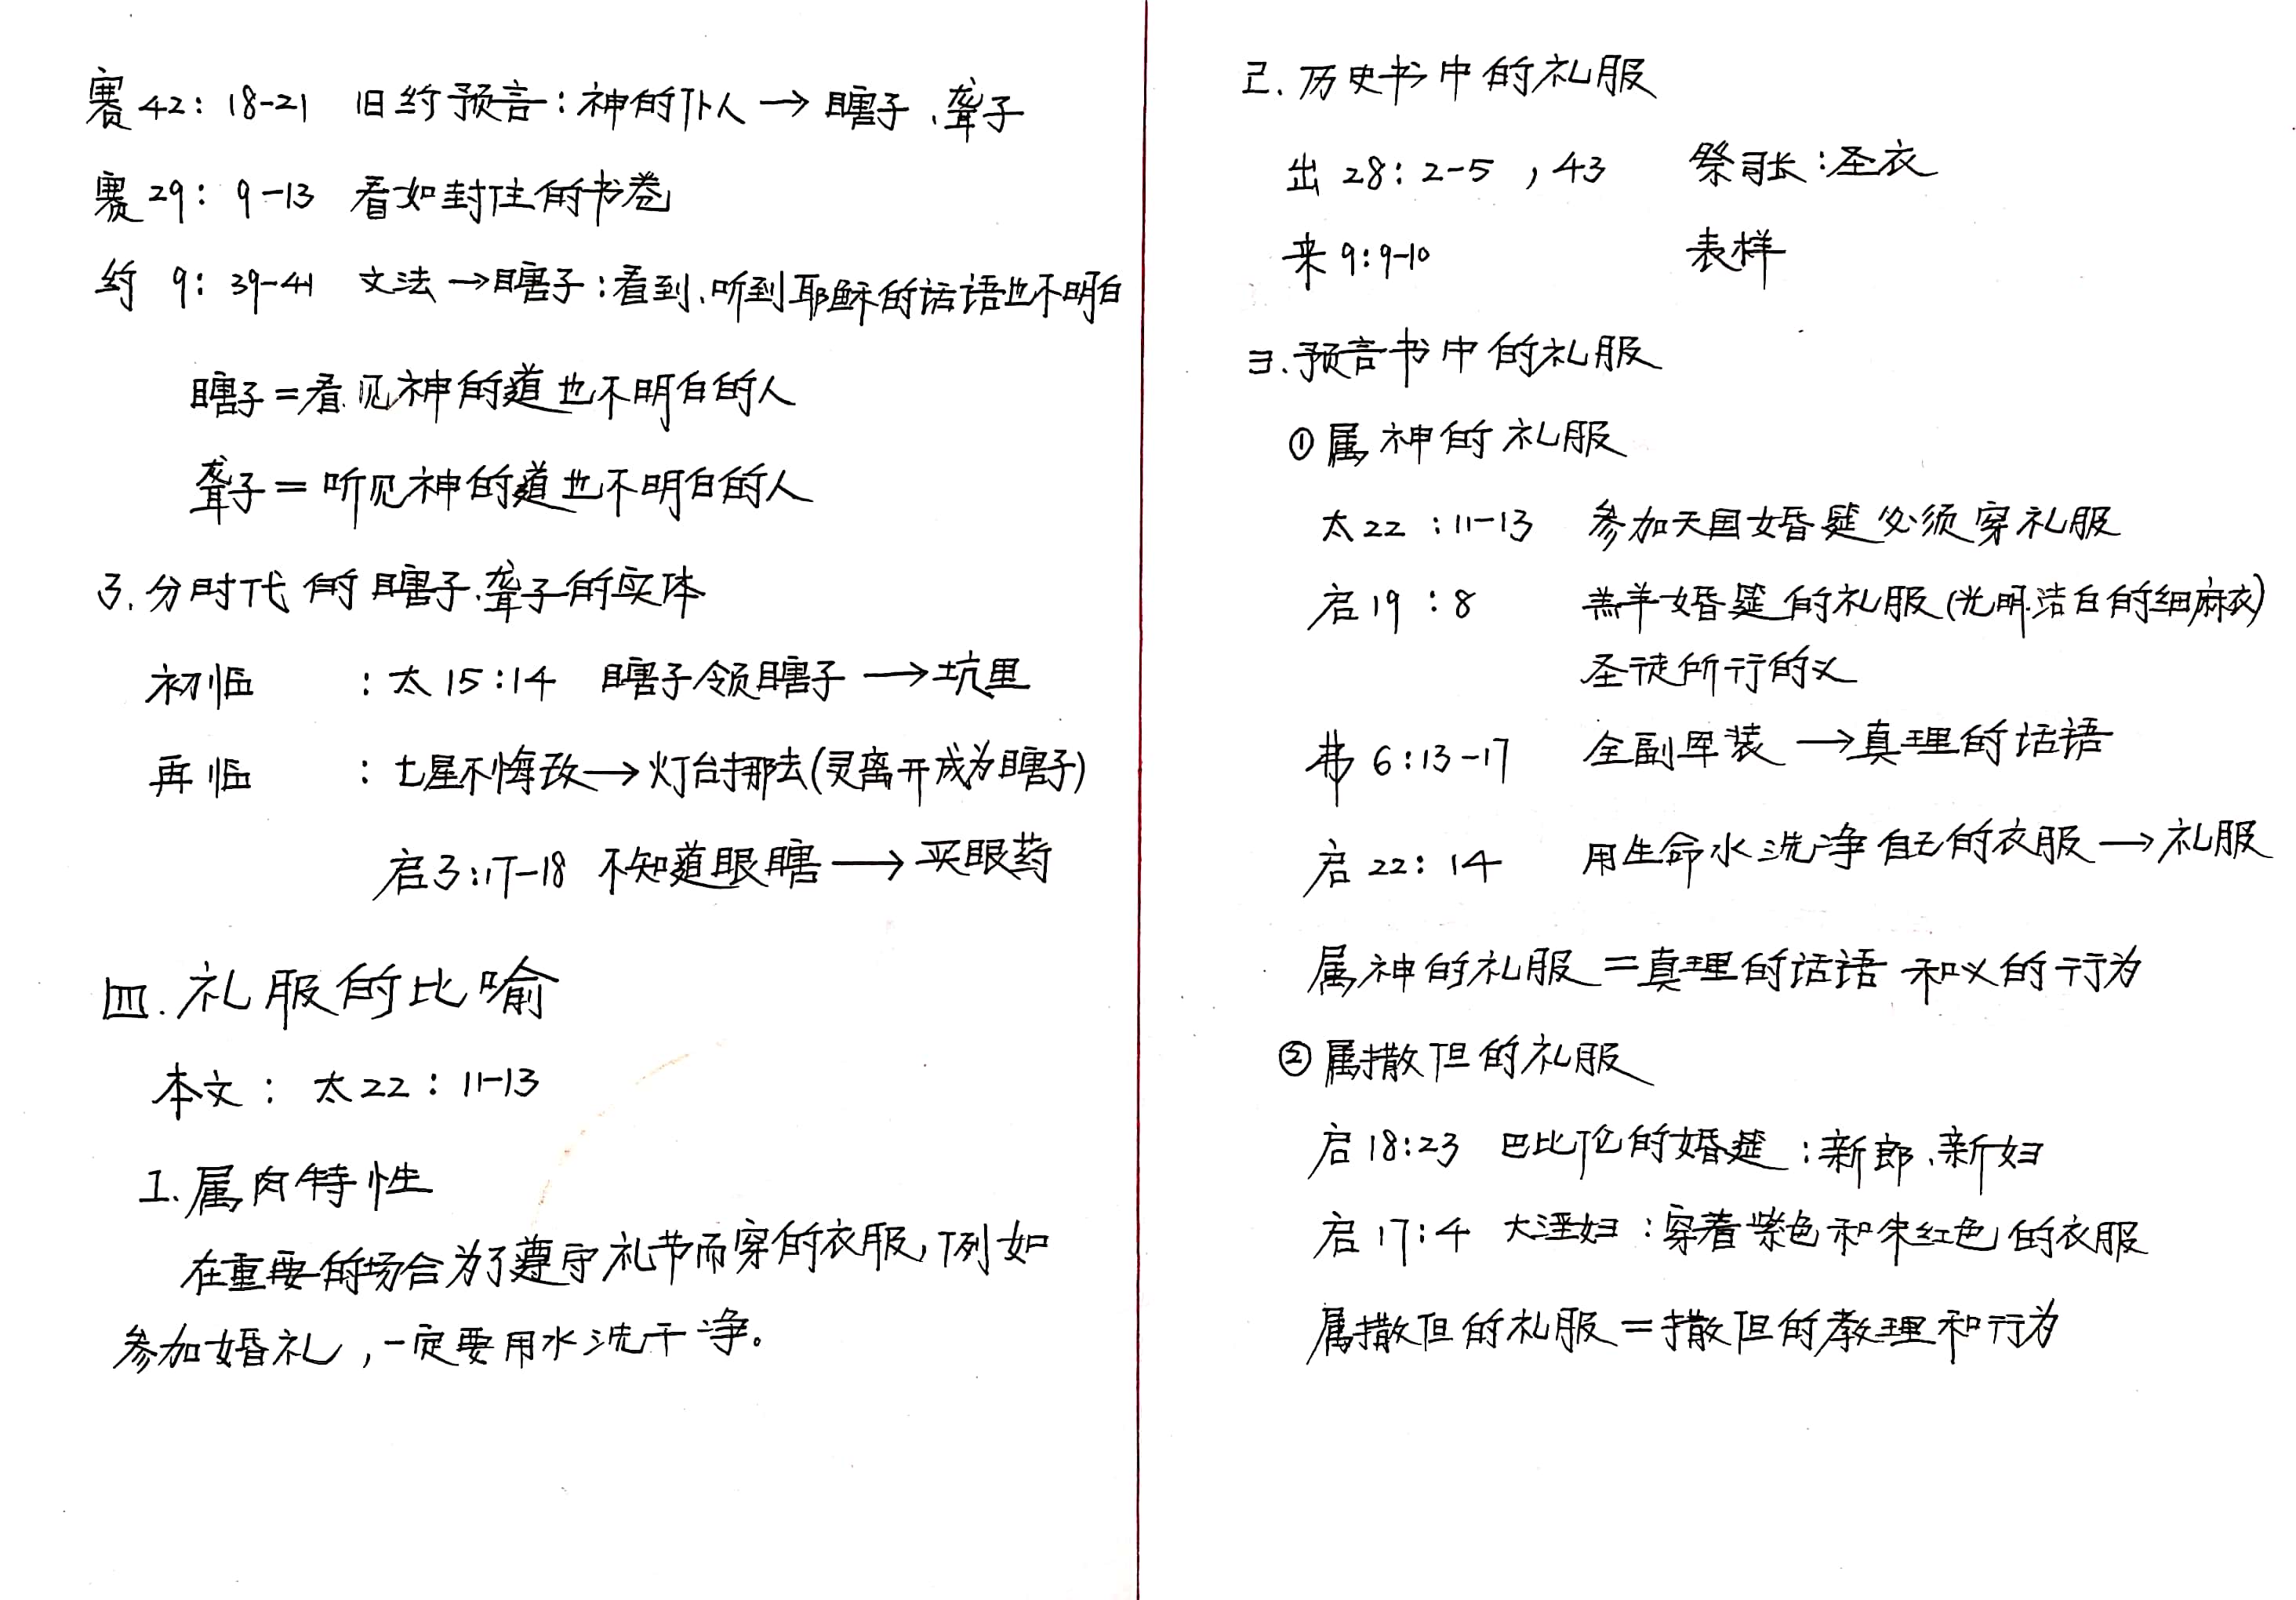 赛42：18-21 旧约预言：神的仆人→瞎子、聋子
赛29：9-13 看如封住的书卷
约 9：39-41 文法→瞎子：看到、听到耶稣的话语也不明白
瞎子＝看见神的道也不明白的人
聋子＝听见神的道也不明白的人
3.分时代的瞎子、聋子的实体
初临 ：太15：14 瞎子领瞎子→坑里
再临 ：七星不悔改→灯台挪去(灵离开成为瞎子)
启3：17-18 不知道眼瞎→买眼药
四.礼服的比喻
本文：太22：11-13
1.属肉特性
在重要的场合为了遵守礼节而穿的衣服，例如
参加婚礼，一定要用水洗干净。
2.历史书中的礼服
出 28：2-5，43 祭司长：圣衣
来9：9-10 表样
3.预言书中的礼服
①属神的礼服
太22：11-13 参加天国婚筵必须穿礼服
启19：8 羔羊婚筵的礼服(光明.洁白的细麻衣)
圣徒所行的义
弗6：13-17 全副军装→真理的话语
启22：14 用生命水洗净自己的衣服→礼服
属神的礼服＝真理的话语和义的行为
②属撒但的礼服
启18：23 巴比伦的婚筵：新郎、新妇
启17：4 大淫妇：穿着紫色和朱红色的衣服
属撒但的礼服＝撒但的教理和行为